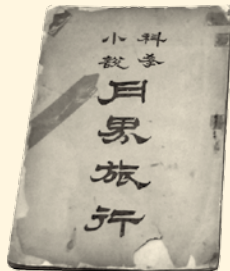 科學
小説
月界旅行